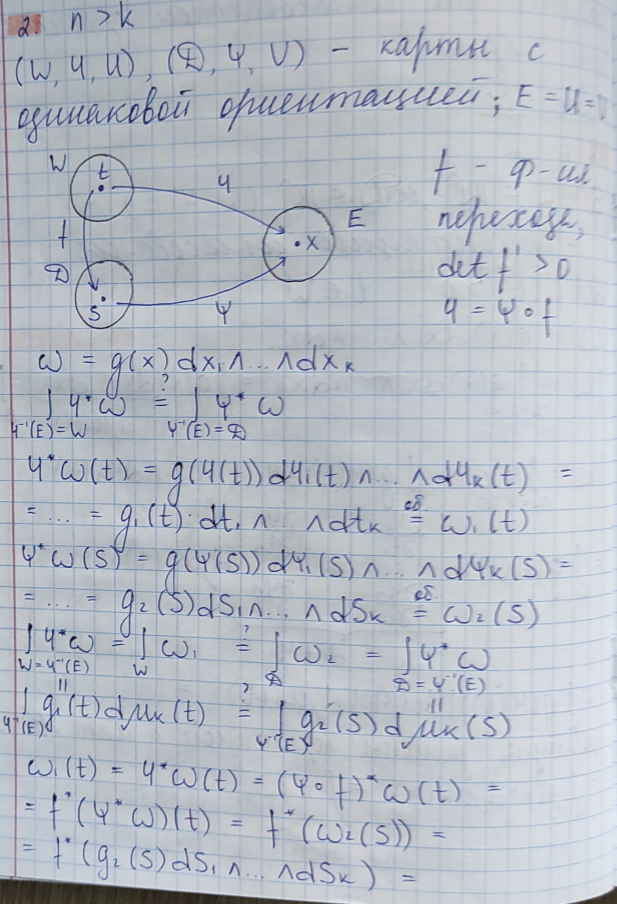 2. n > k
(W, φ, U), (D, ψ, V) - карты с
одинаковой ориентацией; E = U =
W t φ
f E x
D s ψ
f - ф-ия
перехода,
det f' > 0
φ = ψ∘f
ω = g(x) dx₁∧...∧dxₖ
∫ φ*ω ?= ∫ ψ*ω
φ⁻¹(E)=W ψ⁻¹(E)=D
φ*ω(t) = g(φ(t)) dφ₁(t)∧...∧dφₖ(t) =
= ... = g₁(t)·dt₁∧...∧dtₖ об.= ω₁(t)
ψ*ω(s) = g(ψ(s)) dψ₁(s)∧...∧dψₖ(s) =
= ... = g₂(s)ds₁∧...∧dsₖ об.= ω₂(s)
∫ φ*ω = ∫ ω₁ ?= ∫ ω₂ = ∫ ψ*ω
W=φ⁻¹(E) W D D=ψ⁻¹(E)
∫ g₁(t)dμₖ(t) ?= ∫ g₂(s)dμₖ(s)
φ⁻¹(E) ψ⁻¹(E)
ω₁(t) = φ*ω(t) = (ψ∘f)*ω(t) =
= f*(ψ*ω)(t) = f*(ω₂(s)) =
= f*(g₂(s)ds₁∧...∧dsₖ) =